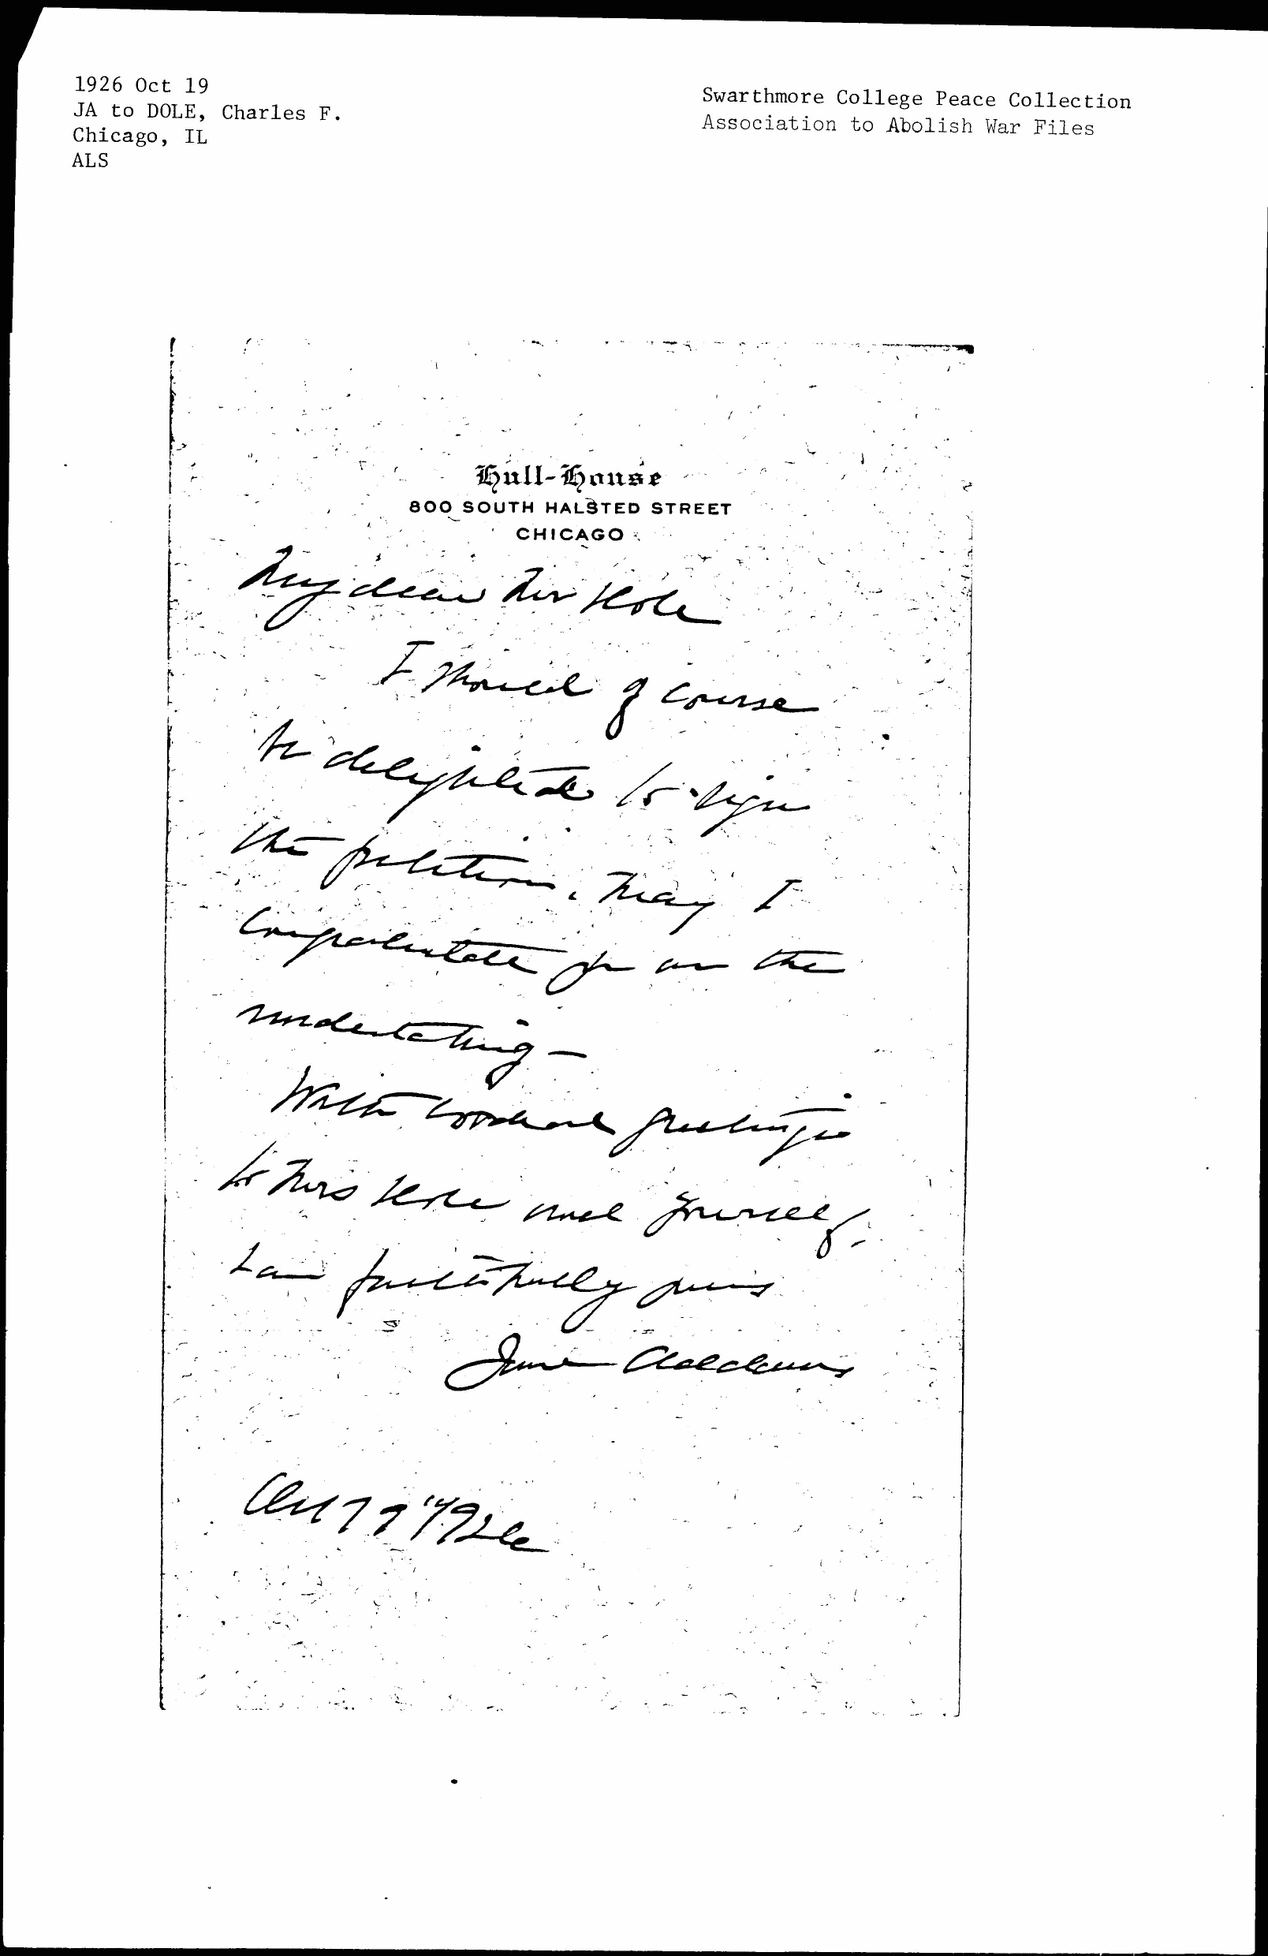 1926 Oct 19
JA to DOLE, Charles F.
Chicago, IL
ALS
Swarthmore College Peace Collection
Association to Abolish War Files
Hull-House
800 SOUTH HALSTED STREET
CHICAGO
My dear Mr Dole
I should of course
be delighted to sign
the petition. May I
congratulate you on the
undertaking —
With cordial greetings
to Mrs Dole and yourself,
I am faithfully yours
Jane Addams
Oct 19" 1926